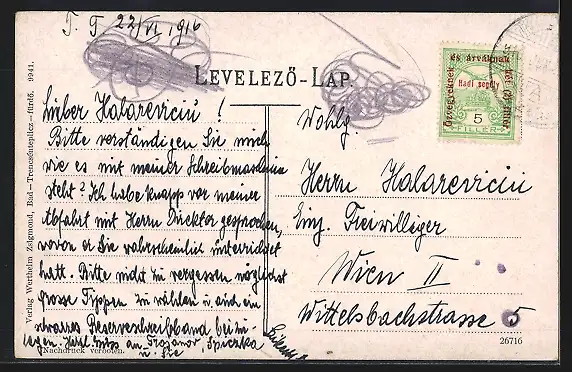 T. T 22/VI, 1916
LEVELEZŐ-LAP.
özvegyeknek és árváknak két (2) fillér
Hadi segély
5
FILLER
Lieber Halareviciu!
Bitte verständigen Sie mich
wie es mit meiner Schreibmaschine
steht? Ich habe knapp vor meiner
Abfahrt mit Herrn Direktor gesprochen,
wovon er Sie wahrscheinlich unterrichtet
hatt. Bitte nicht zu vergessen möglichst
grosse Typpen zu wählen u. auch ein
schwarzes Reserveschreibband beizu-
legen. Herzl. Gruss an Trojanov, Spiczka
u. Sie
Wohlg.
Herrn Halareviciu
Einj. Freiwilleger
Wien II
Wittelsbachstrasse 5
Verlag Wertheim Zsigmond, Bad-Trencsénteplicz-fürdő. 9941.
Nachdruck verboten.
26716